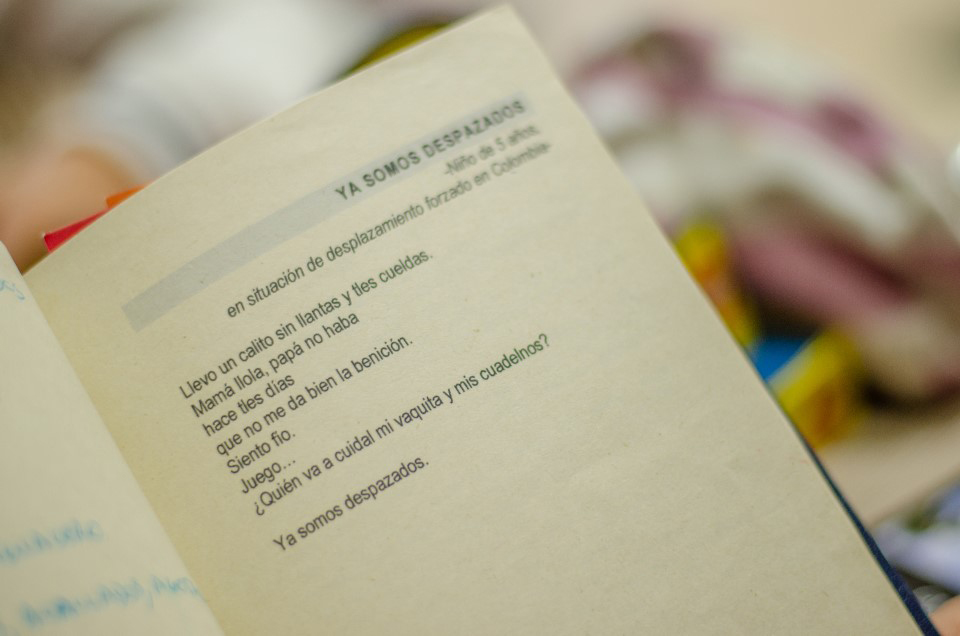 YA SOMOS DESPAZADOS
-Niño de 5 años,
en situación de desplazamiento forzado en Colombia-
Llevo un calito sin llantas y tles cueldas.
Mamá llola, papá no haba
hace tles días
que no me da bien la benición.
Siento fio.
Juego...
¿Quién va a cuidal mi vaquita y mis cuadelnos?
Ya somos despazados.